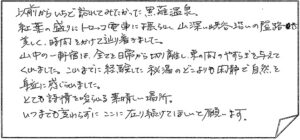 以前からいちど訪れてみたかった黒薙温泉。
紅葉の盛りにトロッコ電車に揺られ、山深い峡谷沿いの隘路
楽しく、時間をかけて辿り着きました。
山中の一軒宿は、全てを日常から切り離し、真の間のやすらぎを与えて
くれました。これまでに経験した秘湯のどこよりも閑静で自然を
身近に感じられました。
とても詩情を唸らせる素晴しい場所。
いつまでも変わらずに ここに在り続けてほしいと願います。